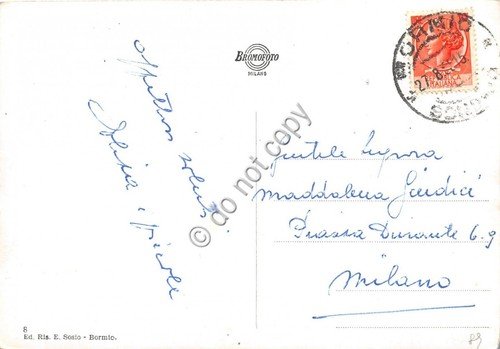 BROMOFOTO
MILANO
BORMIO
27.8.
SONDRIO
REPUBBLICA
ITALIANA
Affettuosi saluti
do not copy
Gentile Signora
Maddalena Giudici
Piazza Durante 6.9
Milano
8
Ed. Ris. E. Sosio - Bormio.